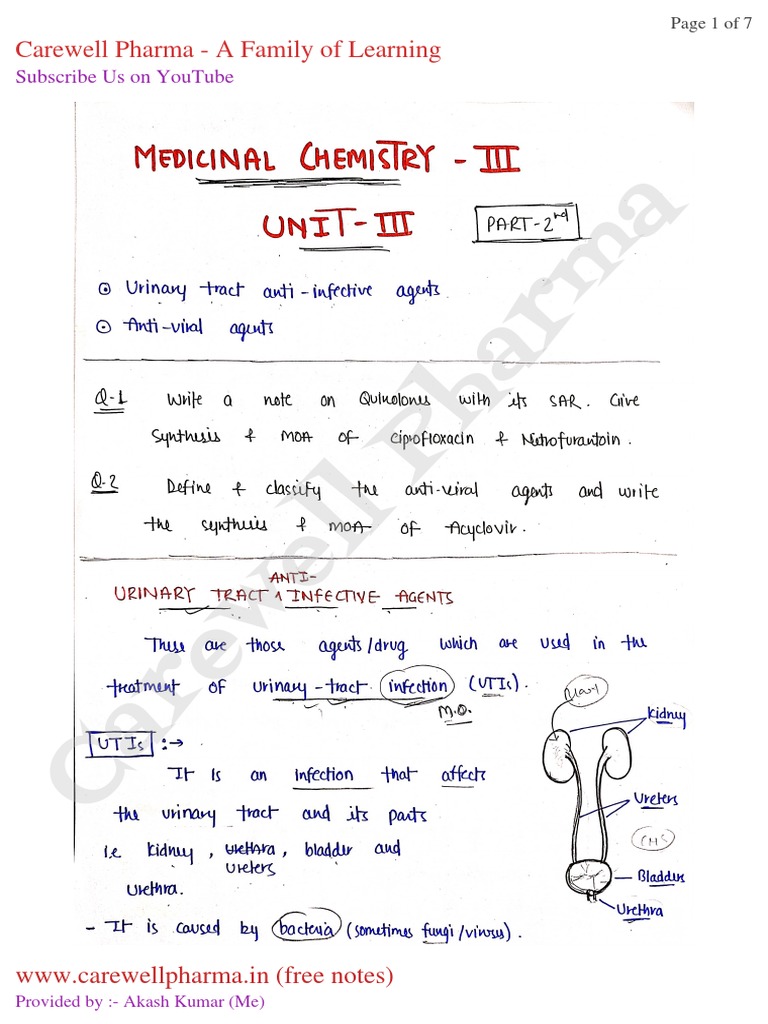 Page 1 of 7
Carewell Pharma - A Family of Learning
Subscribe Us on YouTube
MEDICINAL CHEMISTRY - III
UNIT-III
PART-2nd
Urinary tract anti-infective agents.
Anti-viral agents
Q-1 Write a note on Quinolones with its SAR. Give
synthesis & MOA of ciprofloxacin & Nitrofurantoin.
Q-2 Define & classify the anti-viral agents and write
the synthesis & MOA of Acyclovir.
ANTI-
URINARY TRACT ^ INFECTIVE AGENTS
These are those agents/drug which are used in the
treatment of urinary-tract infection (UTIs).
M.O.
Kidney
UTIs :→
It is an infection that affects
the urinary tract and its parts
Ureters
i.e kidney, urethra, bladder and
ureters
Bladder
urethra.
Urethra
- It is caused by bacteria (sometimes fungi/viruses).
Carewell Pharma
www.carewellpharma.in (free notes)
Provided by :- Akash Kumar (Me)